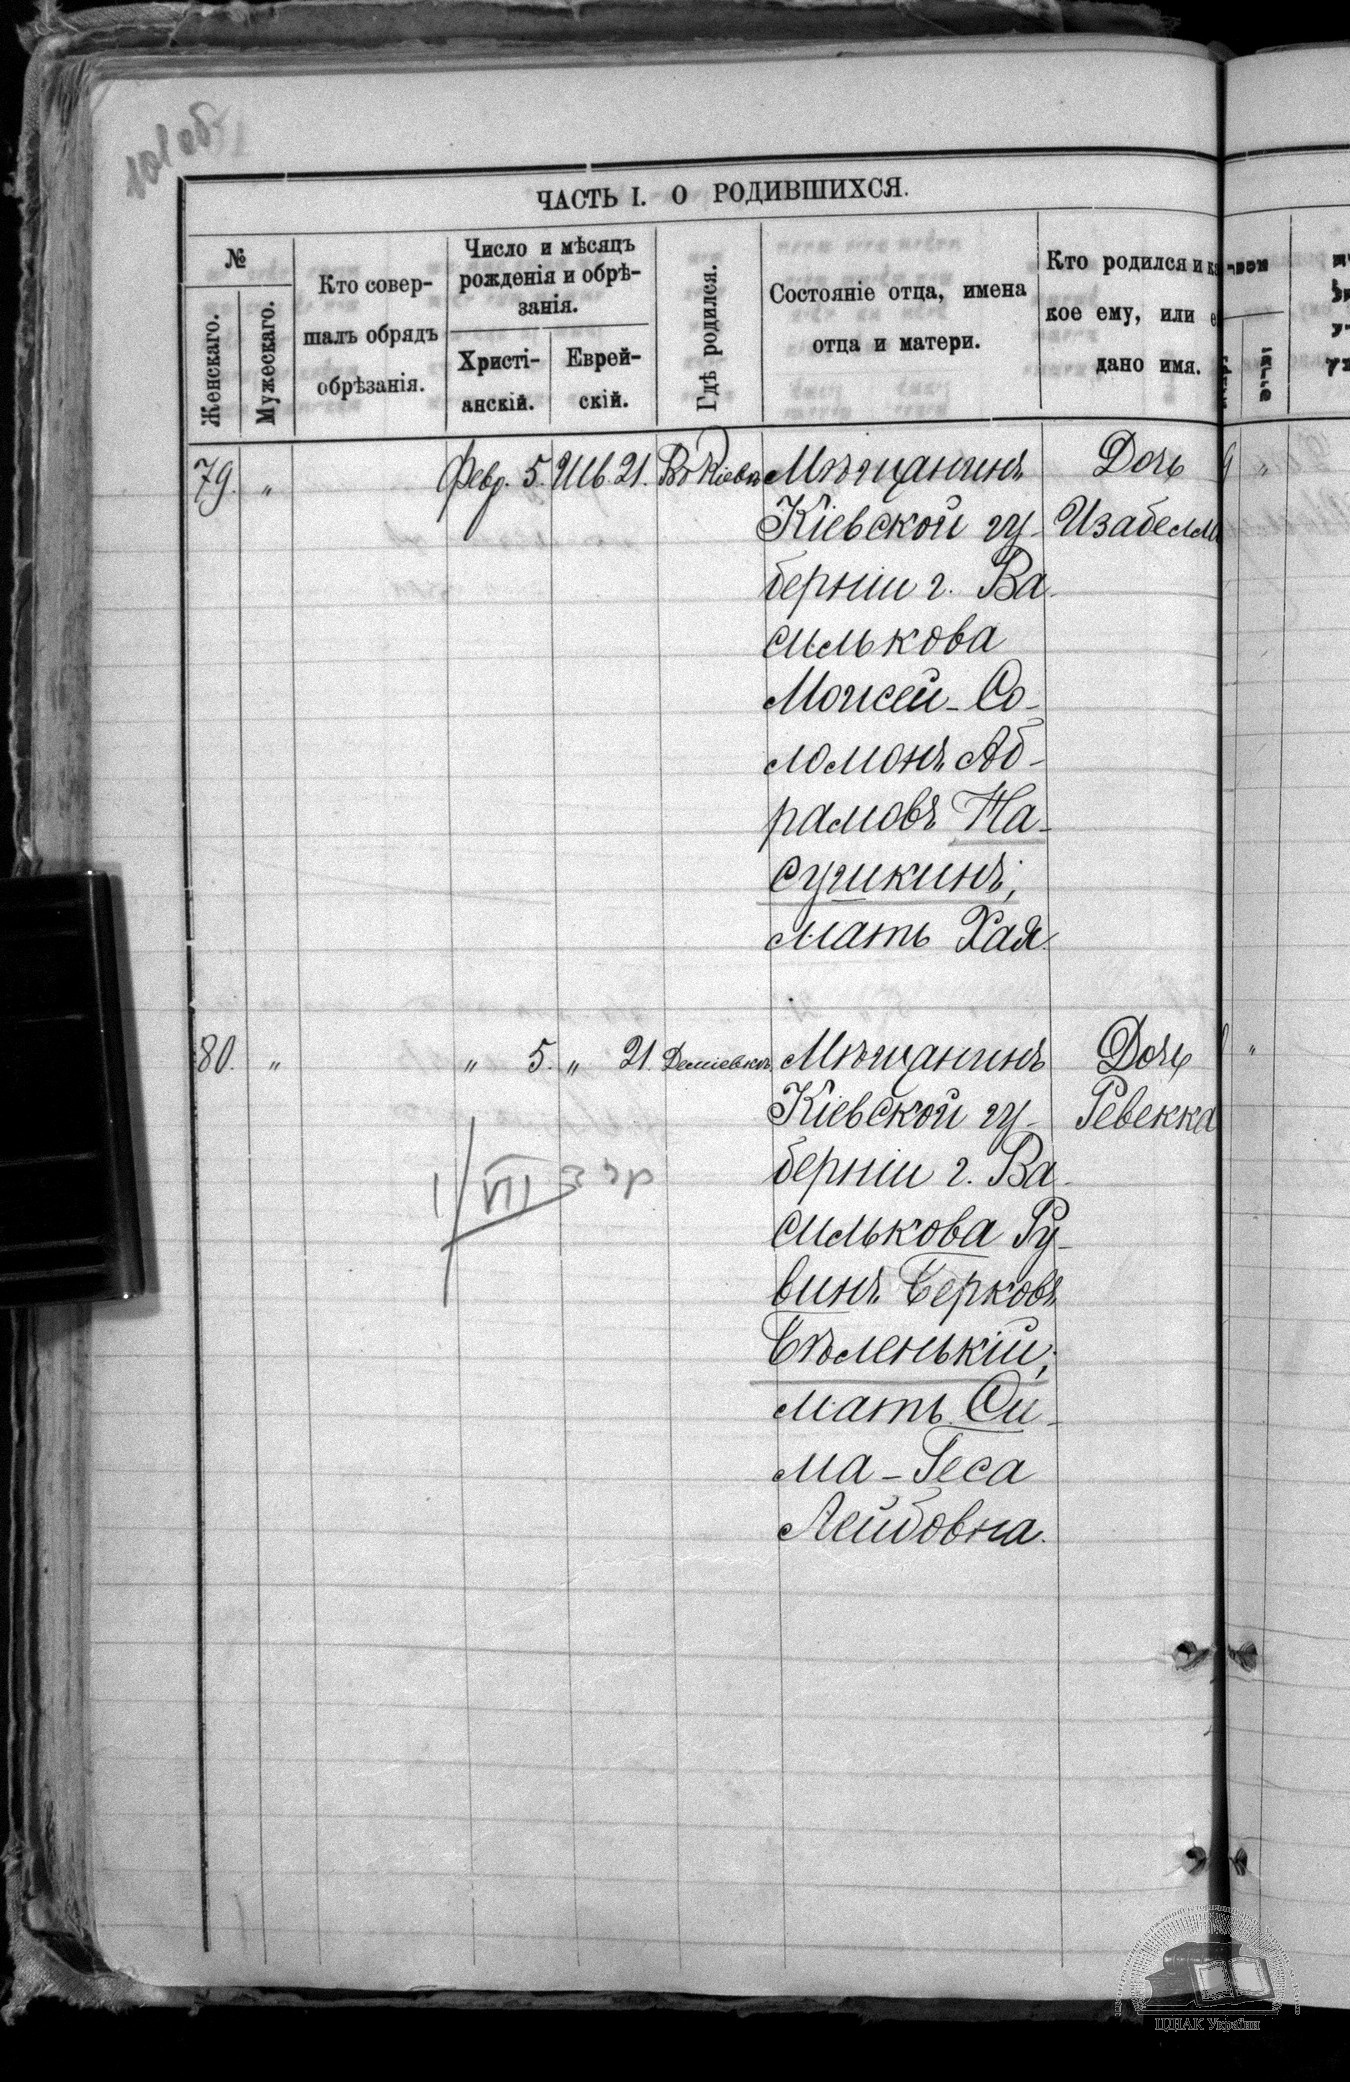 101 об
ЧАСТЬ I. О РОДИВШИХСЯ.
№
Женскаго.
Мужескаго.
Кто совер-
шалъ обрядъ
обрѣзанія.
Число и мѣсяцъ
рожденія и обрѣ-
занія.
Христі-
анскій.
Еврей-
скій.
Гдѣ родился.
Состояніе отца, имена
отца и матери.
Кто родился и ка-
кое ему, или е
дано имя.
79. „ Февр. 5. Шв. 21. Въ Кіевѣ Мѣщанинъ Дочь
Кіевской гу- Изабелла
берніи г. Ва-
силькова
Моисей-Со-
ломонъ Аб-
рамовъ На-
сушкинъ;
мать Хая
80. „ „ 5. „ 21. Деміевкѣ Мѣщанинъ Дочь
Кіевской гу- Ревекка
берніи г. Ва-
силькова Ру-
винъ Берковъ
Бѣленькій;
мать Си-
ма-Геса
Лейбовна.
1/VIII 33 г
ЦДІАК України